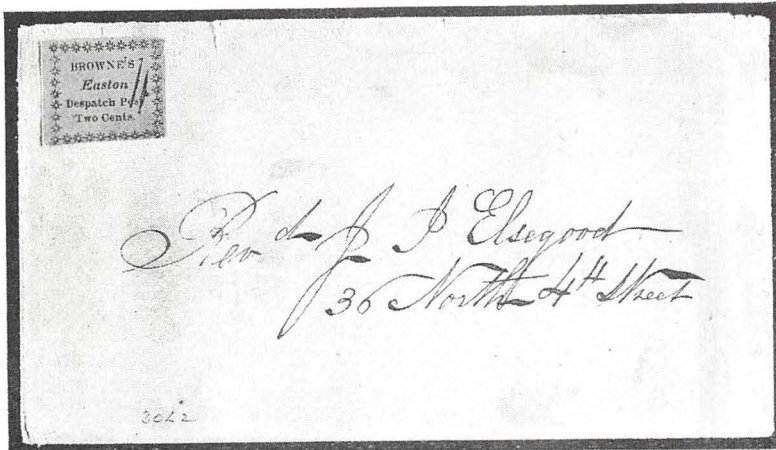 BROWNE'S
Easton
Despatch Post
Two Cents.
Revd J P Elsegood
36 North 4th Street
30L2